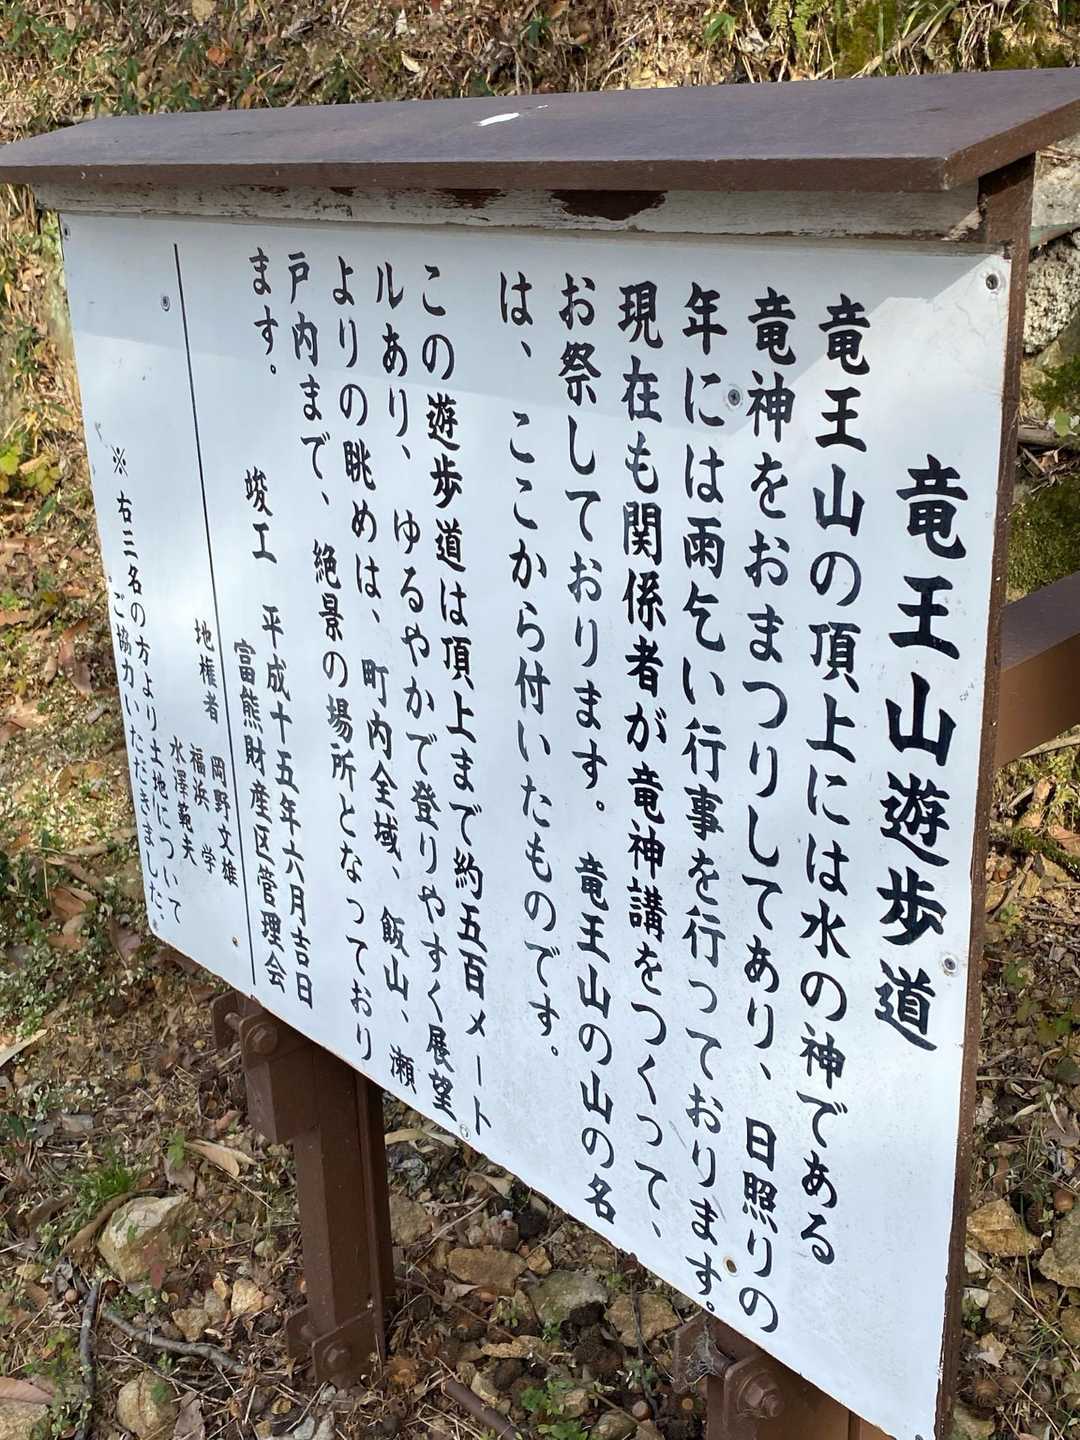 竜王山遊歩道
竜王山の頂上には水の神である
竜神をおまつりしてあり、日照りの
年には雨乞い行事を行っております。
現在も関係者が竜神講をつくって、
お祭しております。竜王山の山の名
は、ここから付いたものです。
この遊歩道は頂上まで約五百メート
ルあり、ゆるやかで登りやすく展望
よりの眺めは、町内全域、飯山、瀬
戸内まで、絶景の場所となっており
ます。
竣工 平成十五年六月吉日
富熊財産区管理会
地権者 岡野文雄
福浜 学
水澤範夫
※右三名の方より土地について
ご協力いただきました。